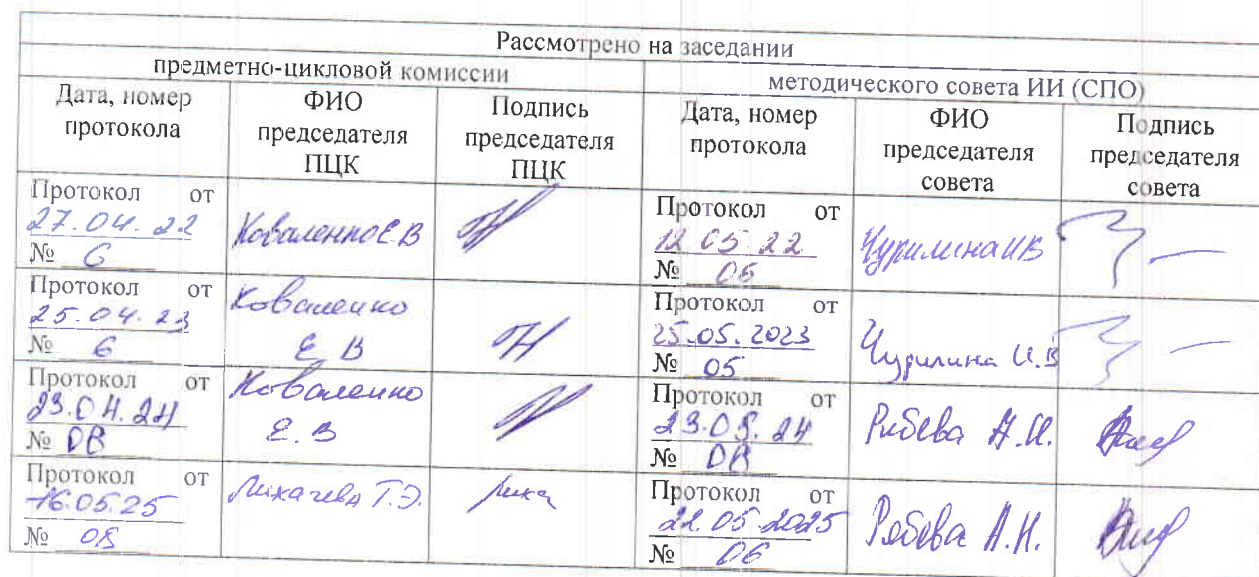 Рассмотрено на заседании
предметно-цикловой комиссии
методического совета ИИ (СПО)
Дата, номер протокола
ФИО председателя ПЦК
Подпись председателя ПЦК
Дата, номер протокола
ФИО председателя совета
Подпись председателя совета
Протокол от
27.04.22
№ 6
Коваленко Е В
Протокол от
12 05 22
№ 05
Чурилина ИВ
Протокол от
25.04.23
№ 6
Коваленко
Е В
Протокол от
25.05.2023
№ 05
Чурилина И.В
Протокол от
23.04.24
№ 08
Коваленко
Е.В
Протокол от
23.05.24
№ 08
А.И.
Протокол от
16.05.25
№ 08
Лихачева Т.Э.
Протокол от
22.05.2025
№ 06
А.И.